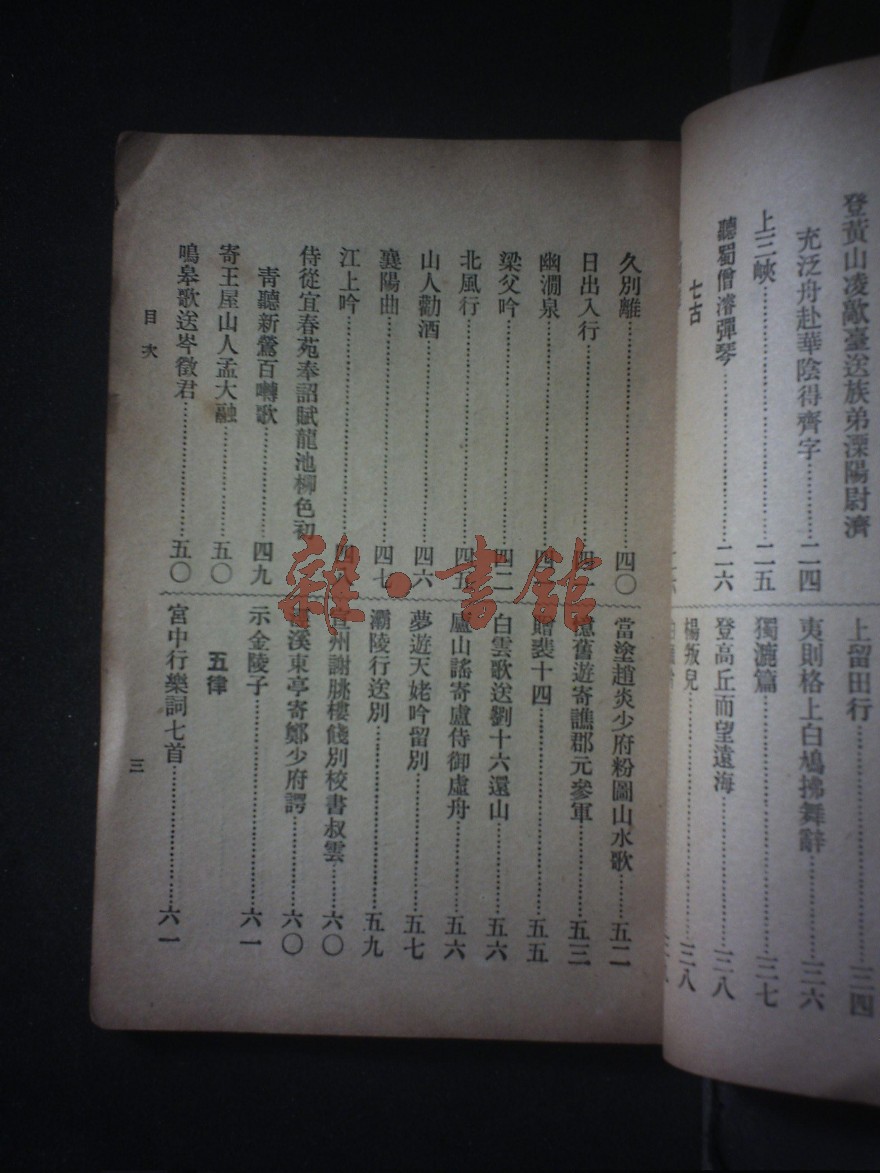 登黃山凌歊臺送族弟溧陽尉濟
充泛舟赴華陰得齊字…………二四
上三峽…………二五
聽蜀僧濬彈琴…………二六
七古
上留田行…………三四
夷則格上白鳩拂舞辭…………三六
獨漉篇…………三七
登高丘而望遠海…………三八
楊叛兒…………三八
久別離…………四〇
日出入行…………四
幽澗泉…………四
梁父吟…………四二
北風行…………四五
山人勸酒…………四六
襄陽曲…………四七
江上吟…………四
侍從宜春苑奉詔賦龍池柳色初
青聽新鶯百囀歌…………四九
寄王屋山人孟大融…………五〇
鳴皋歌送岑徵君…………五〇
當塗趙炎少府粉圖山水歌…………五二
憶舊遊寄譙郡元參軍…………五三
贈裴十四…………五五
白雲歌送劉十六還山…………五六
廬山謠寄盧侍御虛舟…………五六
夢遊天姥吟留別…………五七
灞陵行送別…………五九
宣州謝脁樓餞別校書叔雲…………六〇
溪東亭寄鄭少府諤…………六〇
示金陵子…………六一
五律
宮中行樂詞七首…………六一
目次
三
雜·書館